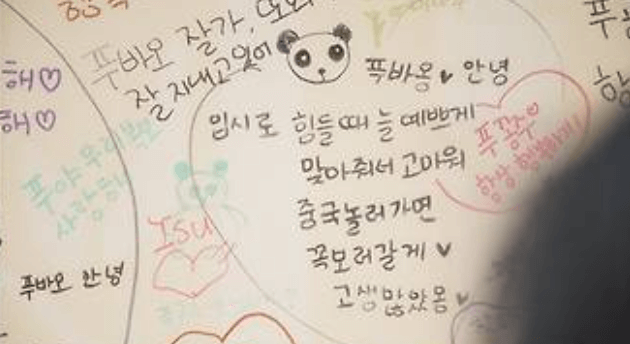 해♡
해♡
푸바오 잘가, 또와
잘 지내고 있어
푹바옹♥ 안녕
입시로 힘들때 늘 예쁘게
맞아줘서 고마워
중국놀러가면
꼭보러갈게♥
고생많았옹♥
푸야 우리
사랑해
ISU
푸바오 안녕
푸꽁주
항상 행복해
푸
항